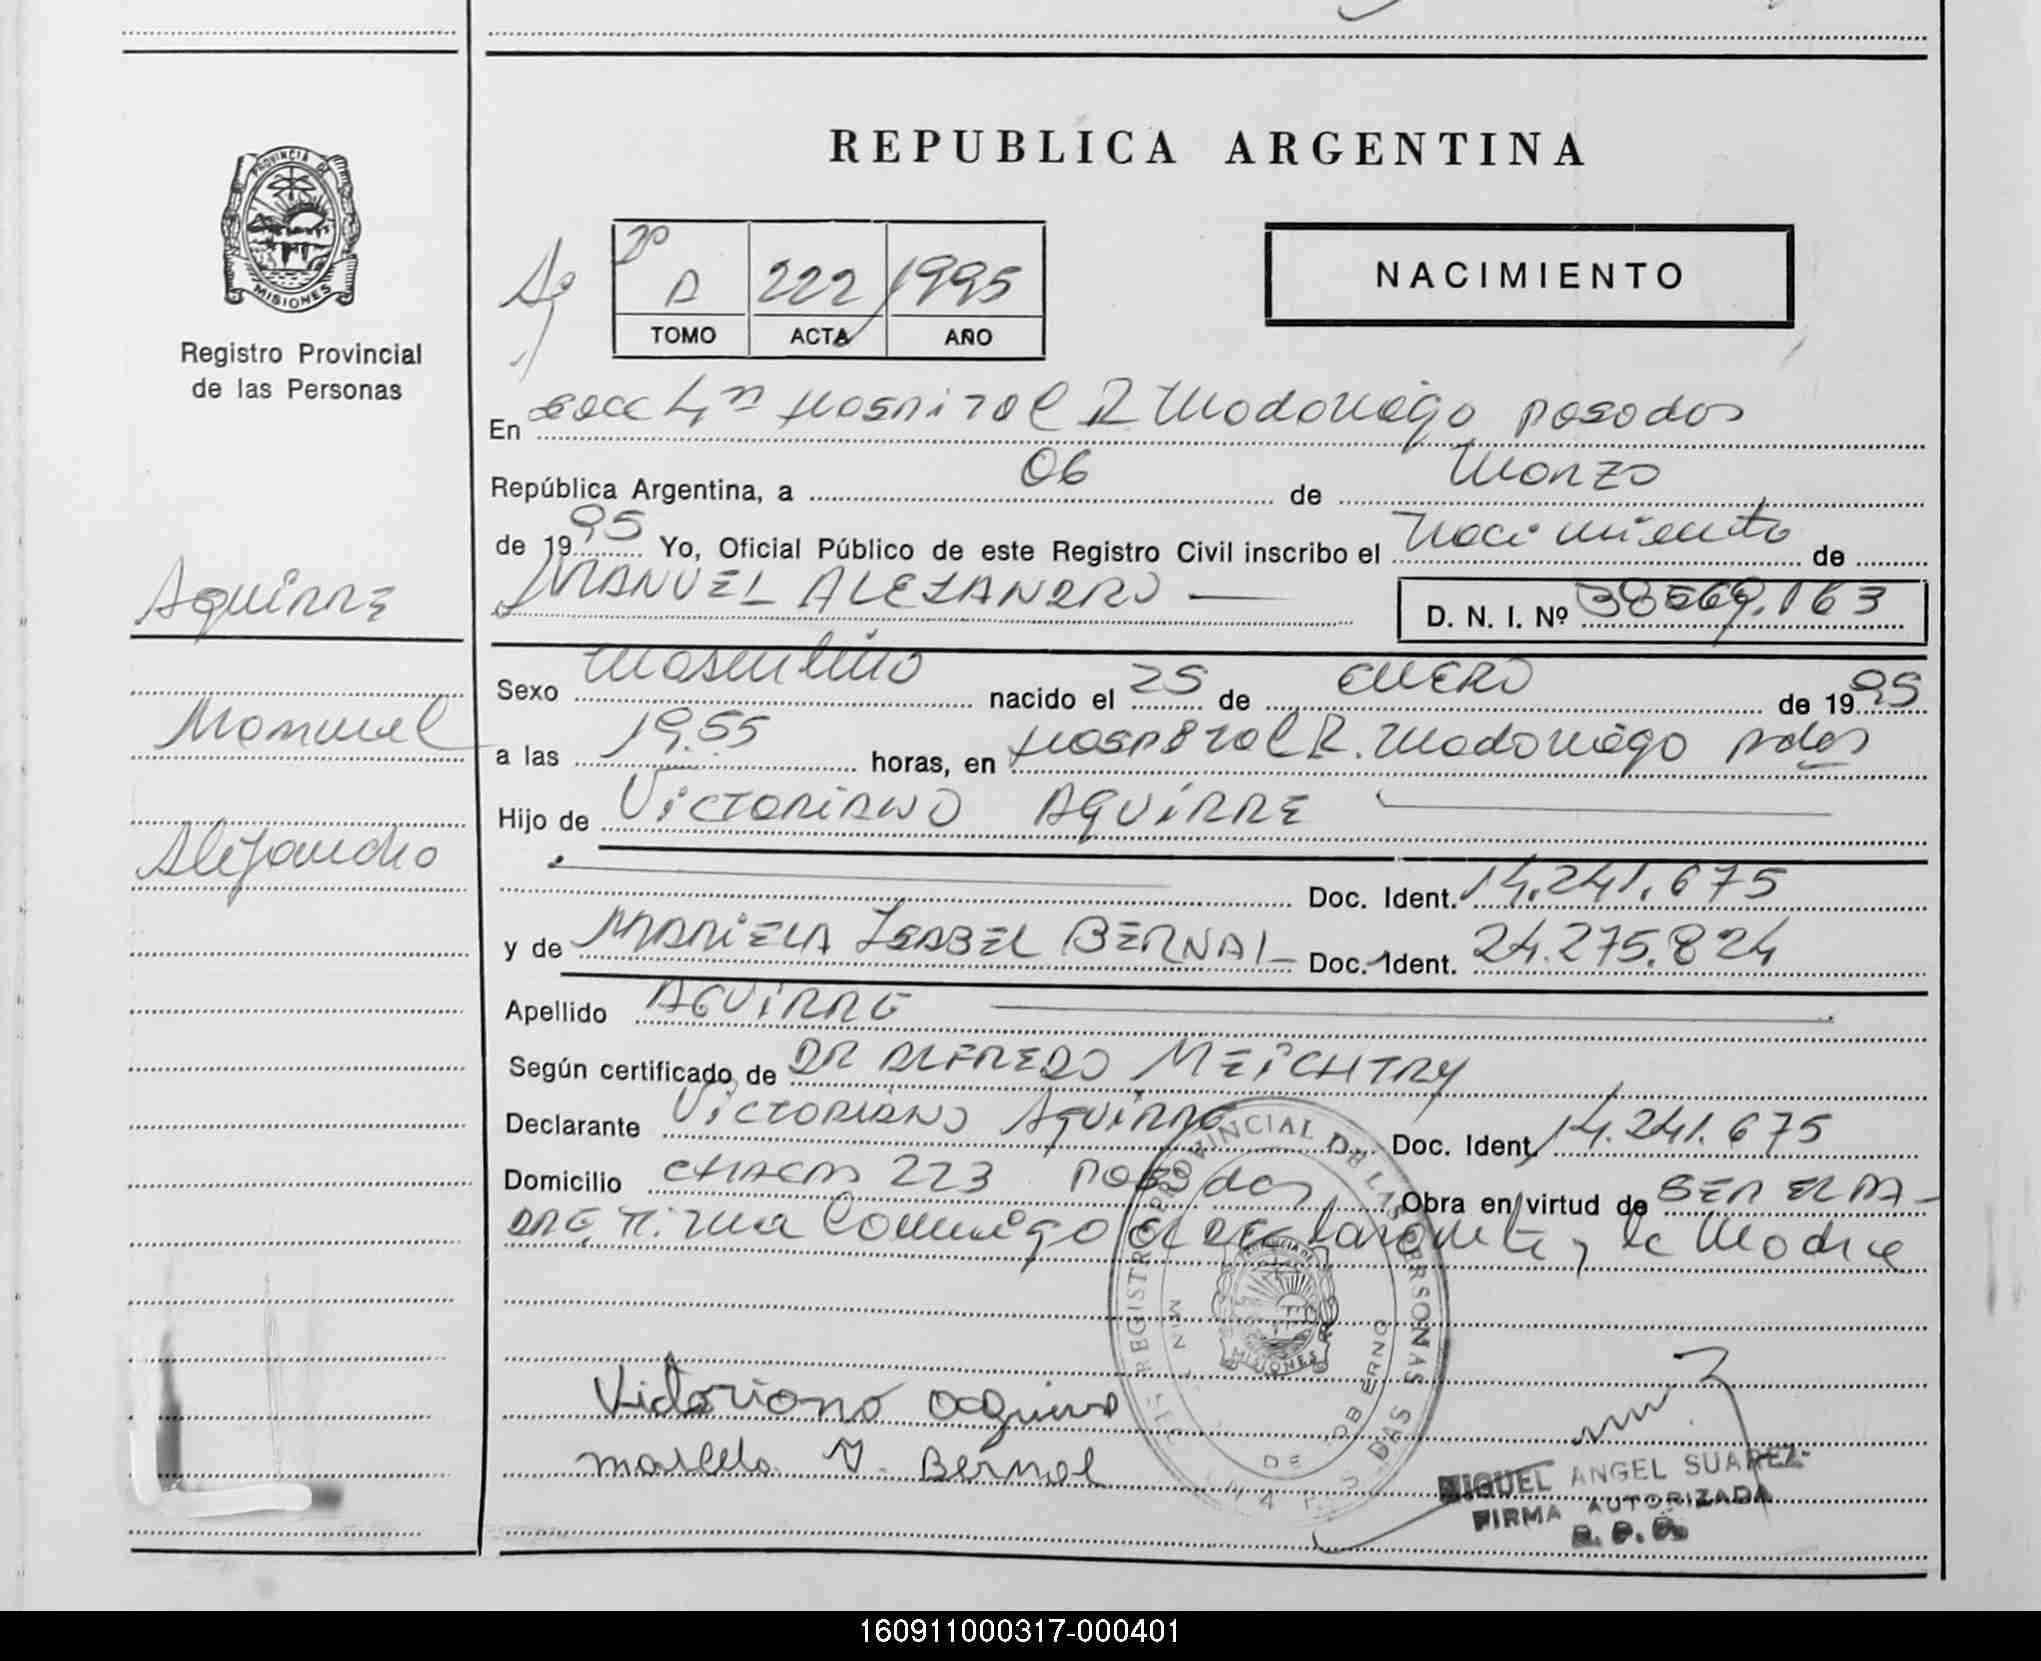 PROVINCIA DE
MISIONES
Registro Provincial
de las Personas
REPUBLICA ARGENTINA
Ag
Tº
D 222 1995
TOMO ACTA AÑO
NACIMIENTO
En Secc 4ª Hospital R Madariaga posadas
República Argentina, a 06 de Marzo
de 1995 Yo, Oficial Público de este Registro Civil inscribo el Nacimiento de
MANUEL ALEJANDRO — D. N. I. Nº 38569.163
Sexo Masculino nacido el 25 de ENERO de 1995
a las 19.55 horas, en Hospital R. Madariaga pdas
Hijo de VICTORIANO AGUIRRE
Doc. Ident. 14.241.675
y de MARIELA ISABEL BERNAL Doc. Ident. 24.275.824
Apellido AGUIRRE
Según certificado de DR ALFREDO MEICHTRY
Declarante VICTORIANO AGUIRRE Doc. Ident. 14.241.675
Domicilio CHACAS 223 POSADAS Obra en virtud de SER EL PA-
DRE, Firma Conmigo el declarante y la Madre
Aguirre
Manuel
Alejandro
REGISTRO PROVINCIAL DE LAS PERSONAS
DE GOBERNO
MISIONES
Victoriano aguirre
Bernal
MIGUEL ANGEL SUAREZ
FIRMA AUTORIZADA
R. P. P.
160911000317-000401